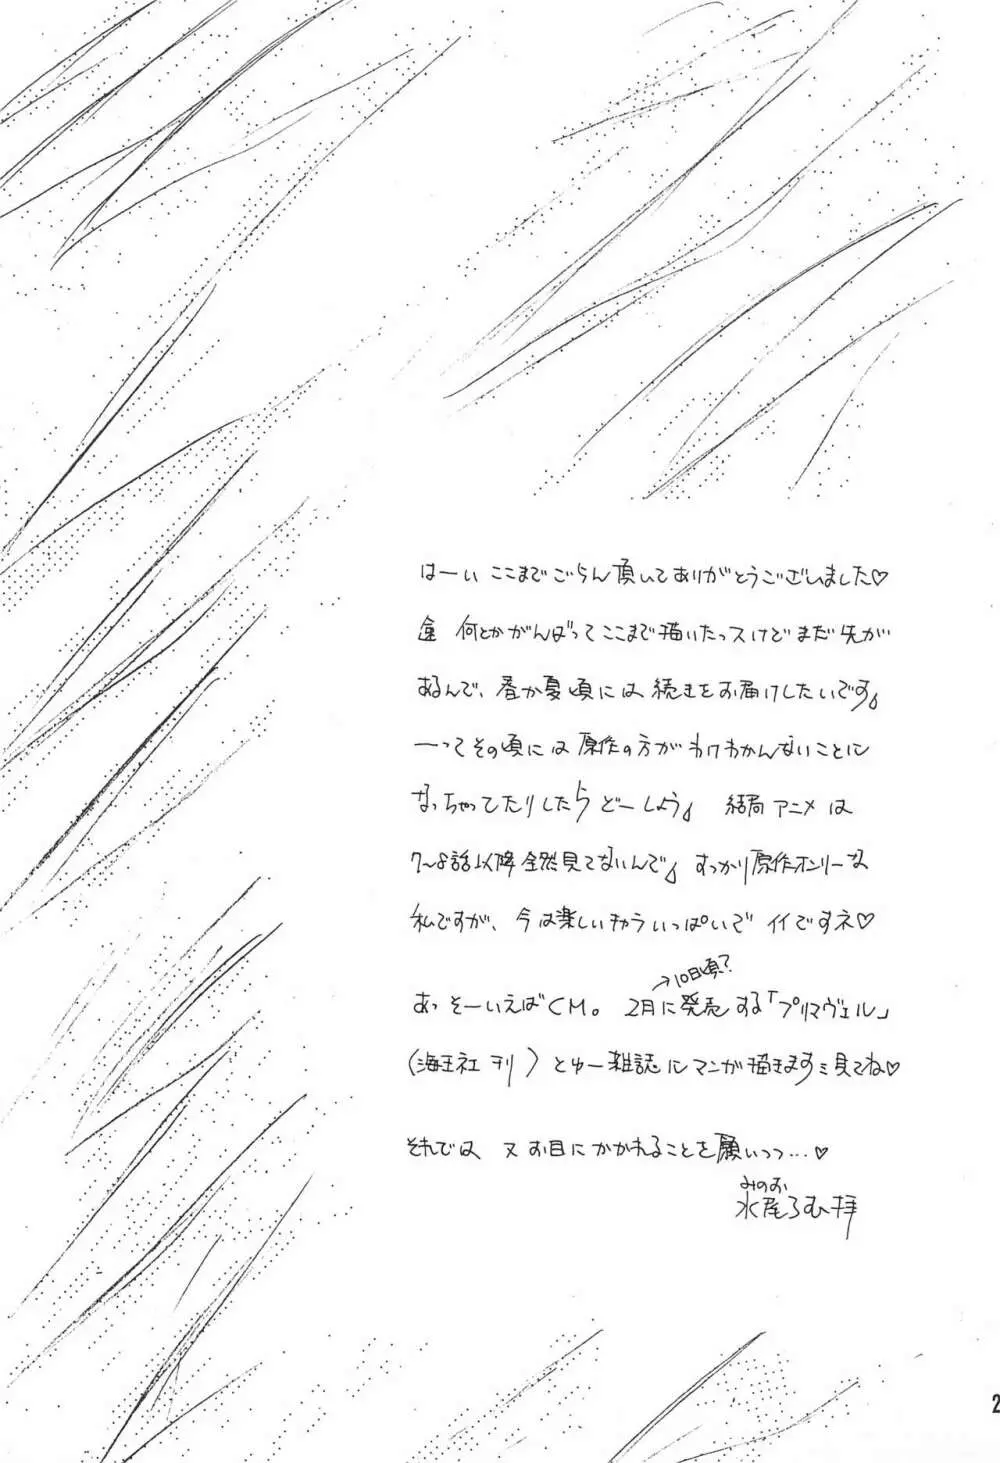 はーい ここまでごらん頂いてありがとうございました♡
何とかがんばってここまで描いたっスけどまだ先が
あるんで、春か夏頃には続きをお届けしたいです。
ーってその頃には原作の方がわけわかんないことに
なっちゃってたりしたらどーしよう。 結局アニメは
7〜8話以降全然見てないんで。すっかり原作オンリーな
私ですが、今は楽しいキャラいっぱいで イイですネ♡
→10日頃?
あっ そーいえばCM。 2月に発売する「プリマヴェル」
(海王社刊) とゆー雑誌にマンガ描きますミ見てね♡
それでは 又お目にかかれることを願いつつ…♡
みのお
水尾ろむ拝
2